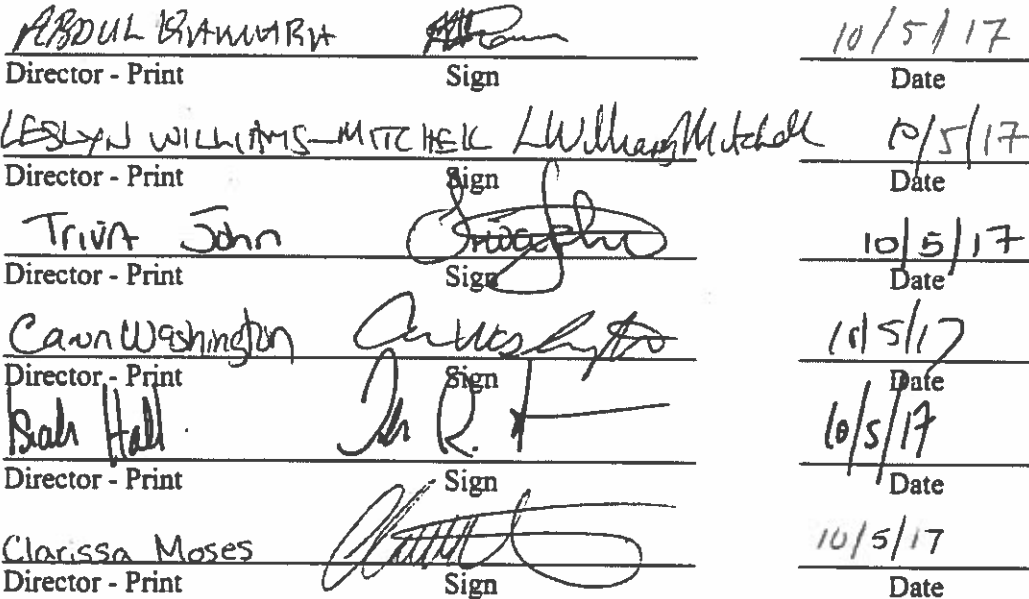 ABDUL 10/5/17
Director - Print Sign Date
LESLYN WILLIAMS-MITCHELL LWilliamsMitchell 10/5/17
Director - Print Sign Date
Triva John 10/5/17
Director - Print Sign Date
Caron Washington 10/5/17
Director - Print Sign Date
Isiah Hall 10/5/17
Director - Print Sign Date
Clarissa Moses 10/5/17
Director - Print Sign Date